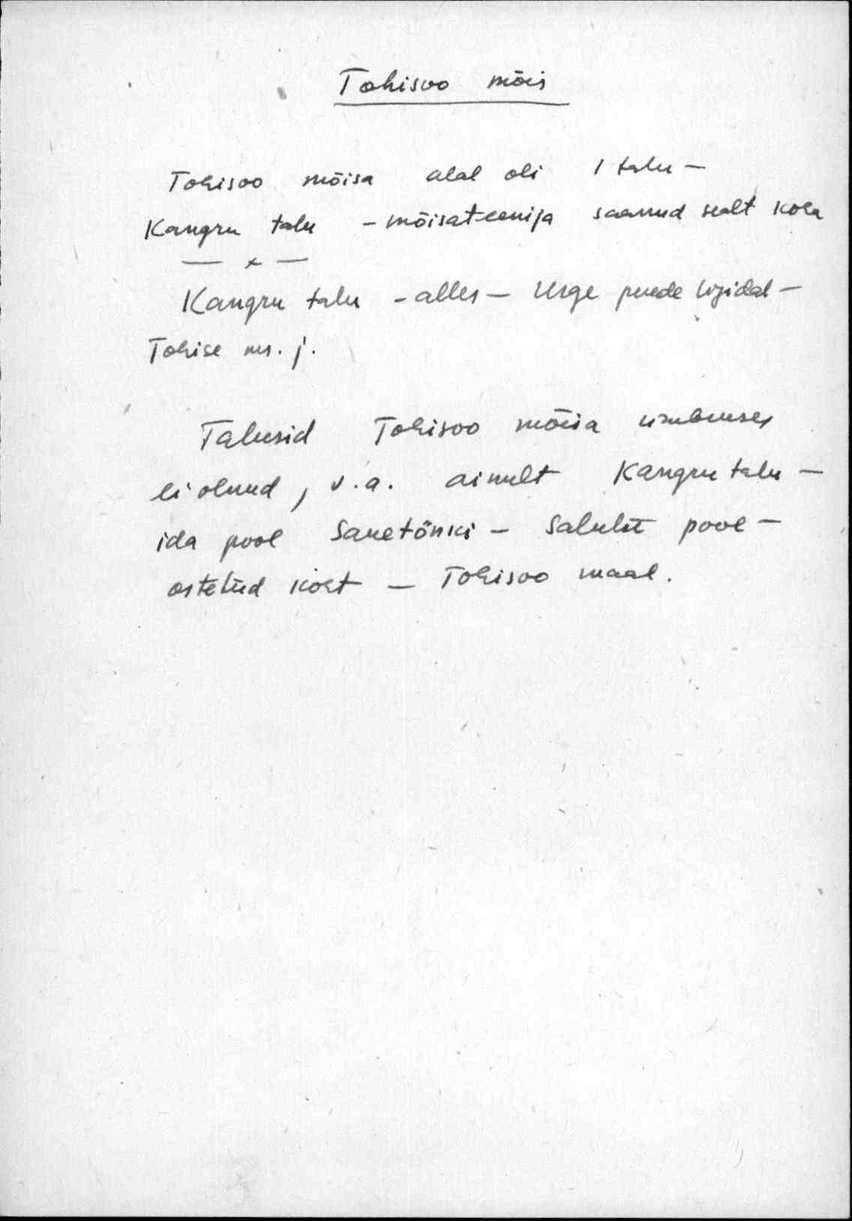 Tohisoo mõis
Tohisoo mõisa alal oli 1 talu –
Kangru talu – mõisateenija saanud sealt koha
— x —
Kangru talu – alles – Urge puude
Tohise
Talusid Tohisoo mõisa ümbruses
ei olnud, v.a. ainult Kangru talu –
ida pool – pool –
ostetud koht – Tohisoo maal.